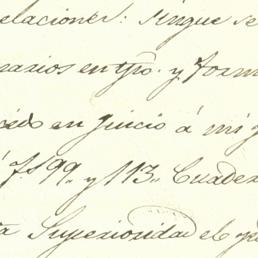 elaciones: sin que se
rarios en tpõ. y form
cido en juicio á mi
fs 99. y 113. Cuader
ta Superioridad el